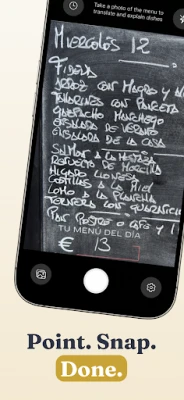 Take a photo of the menu to
translate and explain dishes
MIERCOLES 12
FIDEUA
ARROZ CON MAGRO Y
TALLARINES CON PANCETA
GAZPACHO MANCHEGO
ENSALADA DE VERANO
ENSALADA DE LA CASA
SALMON A LA
REVUELTO DE MORCILLA
HIGADO
COSTILLAS A LA MIEL
LOMO A LA PLANCHA
TERNERA CON
PAN POSTRE O CAFE Y
TU MENÚ DEL DÍA
€ 13
Point. Snap.
Done.